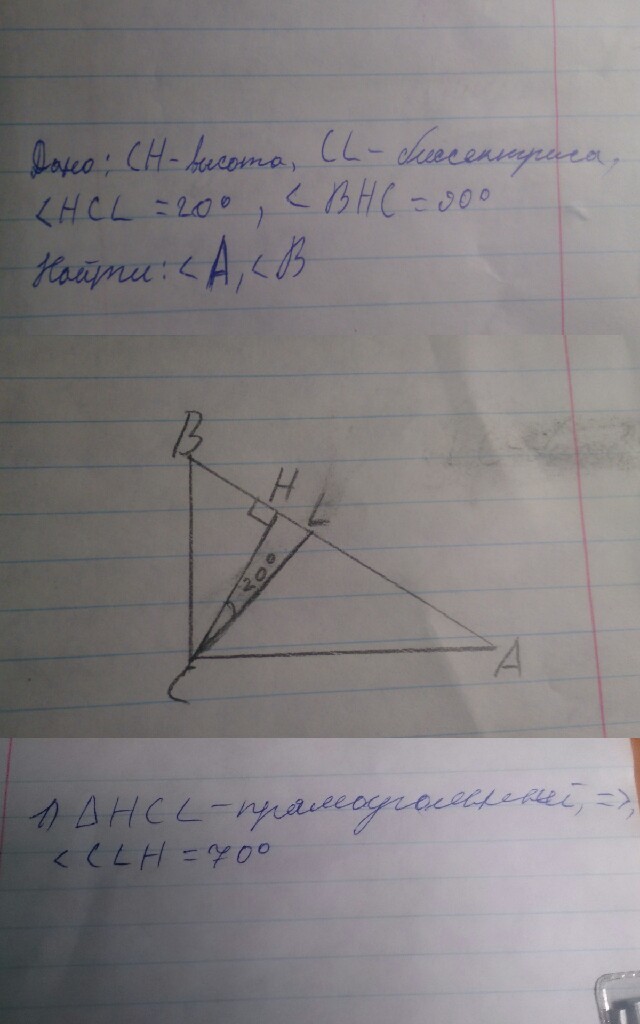 Дано: CH-высота, CL-биссектриса,
<HCL=20°, <BHC=90°
Найти: <A, <B
B
H
L
20°
A
C
1) ΔHCL-прямоугольный, =>,
<CLH=70°